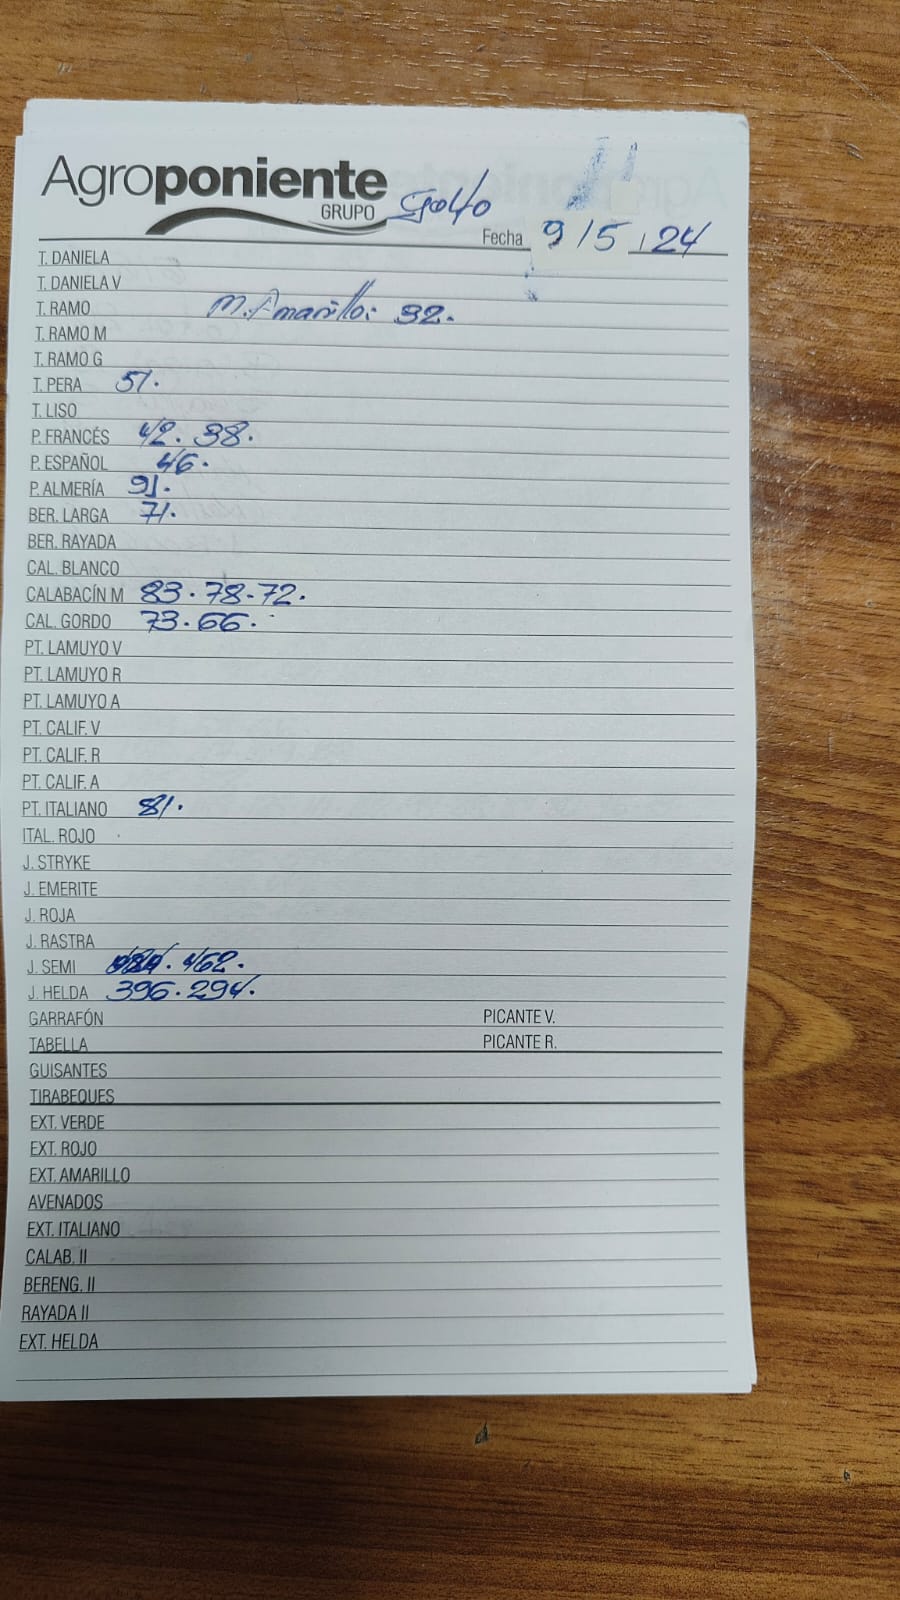 Agroponiente
GRUPO
Golfo
Fecha 9/5/24
T. DANIELA
T. DANIELA V
T. RAMO M. Amarillo: 32.
T. RAMO M
T. RAMO G
T. PERA 51.
T. LISO
P. FRANCÉS 42. 38.
P. ESPAÑOL 46.
P. ALMERÍA 91.
BER. LARGA 71.
BER. RAYADA
CAL. BLANCO
CALABACÍN M 83. 78-72.
CAL. GORDO 73. 66.
PT. LAMUYO V
PT. LAMUYO R
PT. LAMUYO A
PT. CALIF. V
PT. CALIF. R
PT. CALIF. A
PT. ITALIANO 81.
ITAL. ROJO
J. STRYKE
J. EMERITE
J. ROJA
J. RASTRA
J. SEMI 462.
J. HELDA 396. 294.
GARRAFÓN PICANTE V.
TABELLA PICANTE R.
GUISANTES
TIRABEQUES
EXT. VERDE
EXT. ROJO
EXT. AMARILLO
AVENADOS
EXT. ITALIANO
CALAB. II
BERENG. II
RAYADA II
EXT. HELDA